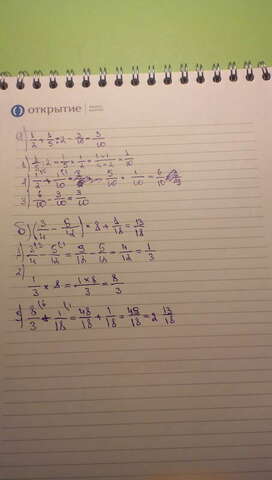 открытие
а) 1/2 + 1/5 : 2 - 3/10 = 3/10
1) 1/5 : 2 = 1/5 · 1/2 = 1·1/5·2 = 1/10
2) 1/2 + 1/10 = 5/10 + 1/10 = 6/10
3) 6/10 - 3/10 = 3/10
б) (3/4 - 5/12) × 8 + 1/18 = 13/18
1) 3/4 - 5/12 = 9/12 - 5/12 = 4/12 = 1/3
2)
1/3 × 8 = 1×8/3 = 8/3
3) 8/3 + 1/18 = 48/18 + 1/18 = 49/18 = 2 13/18